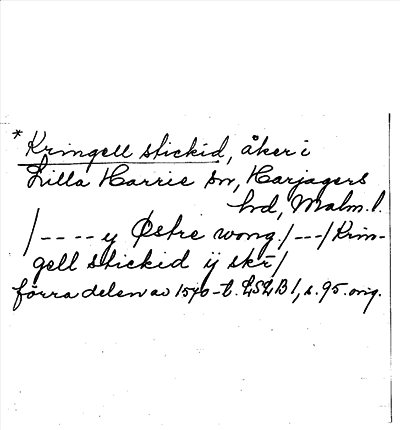 * Kringell stickid, åker i
Lilla Harrie sn, Harjagers
hd, Malm. l.
/ - - - - y Østre wong / - - - / Krin-
gell stickid ij skr /
förra delen av 1540-t. LSLB 1, s. 95. orig.